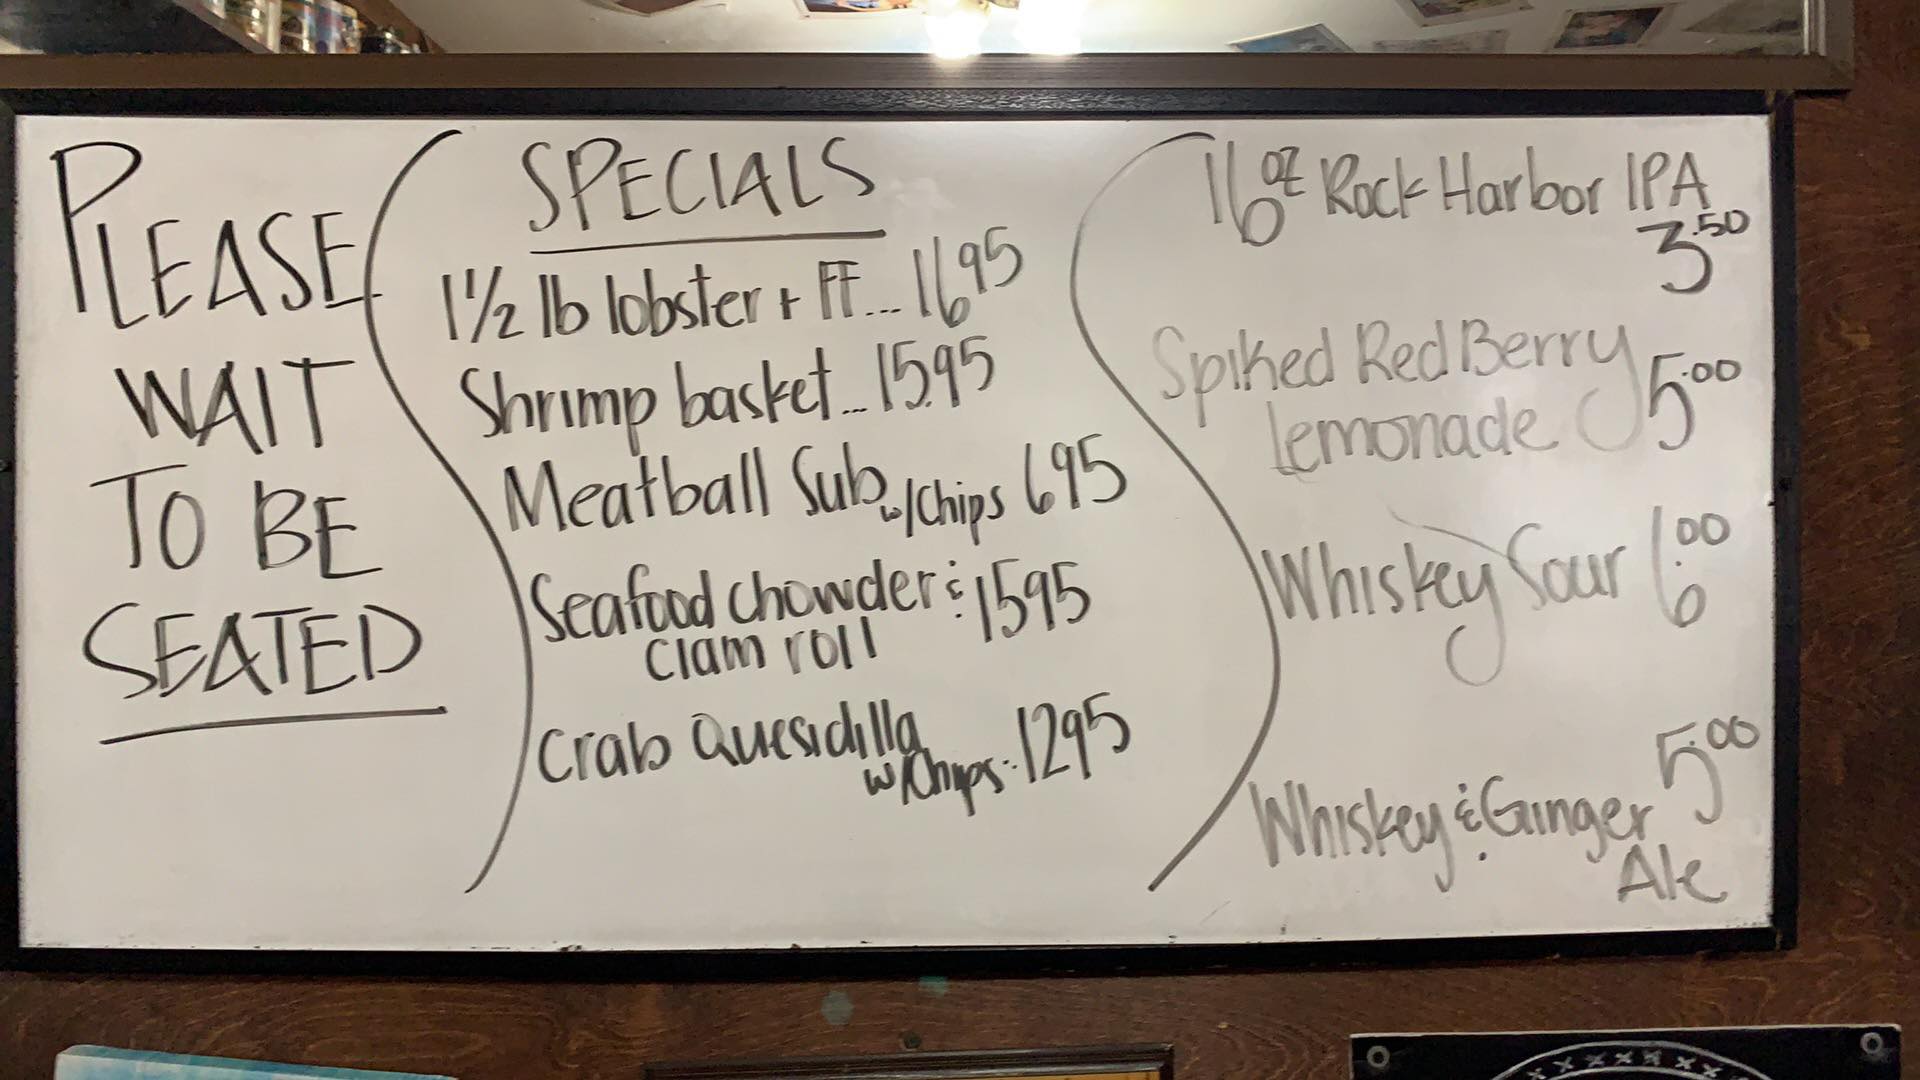 PLEASE
WAIT
TO BE
SEATED
SPECIALS
1 1/2 lb lobster + FF... 1695
Shrimp basket... 15.95
Meatball Sub w/Chips 695
Seafood chowder & 1595
clam roll
Crab Quesidilla
w/Chips.. 1295
16oz Rock Harbor IPA
3.50
Spiked Red Berry
lemonade 5.00
Whiskey Sour 6.00
Whiskey & Ginger 5.00
Ale